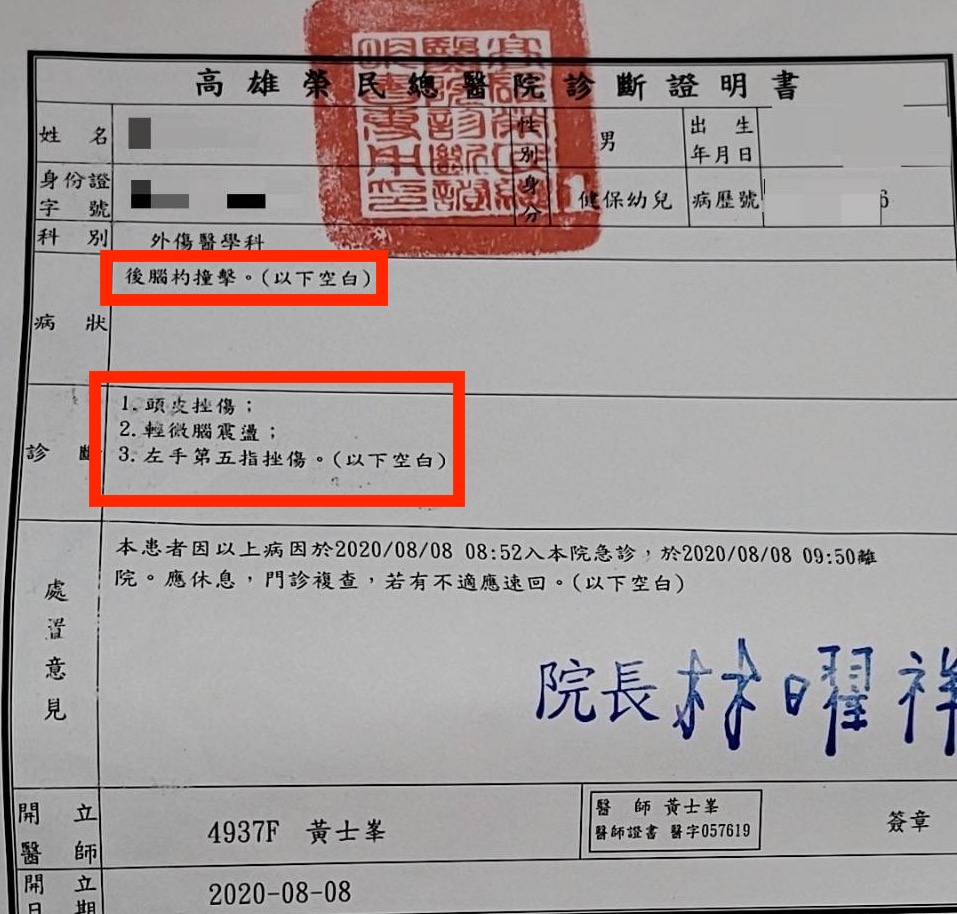 高雄榮民總醫院診斷證明書
姓名
性別 男
出生年月日
身份證字號
身分 健保幼兒
病歷號 6
科別 外傷醫學科
病狀
後腦杓撞擊。(以下空白)
診斷
1.頭皮挫傷；
2.輕微腦震盪；
3.左手第五指挫傷。(以下空白)
處置意見
本患者因以上病因於2020/08/08 08:52入本院急診，於2020/08/08 09:50離
院。應休息，門診複查，若有不適應速回。(以下空白)
院長 林曜祥
開立醫師 4937F 黃士峯
醫師 黃士峯
醫師證書 醫字057619
簽章
開立日期 2020-08-08